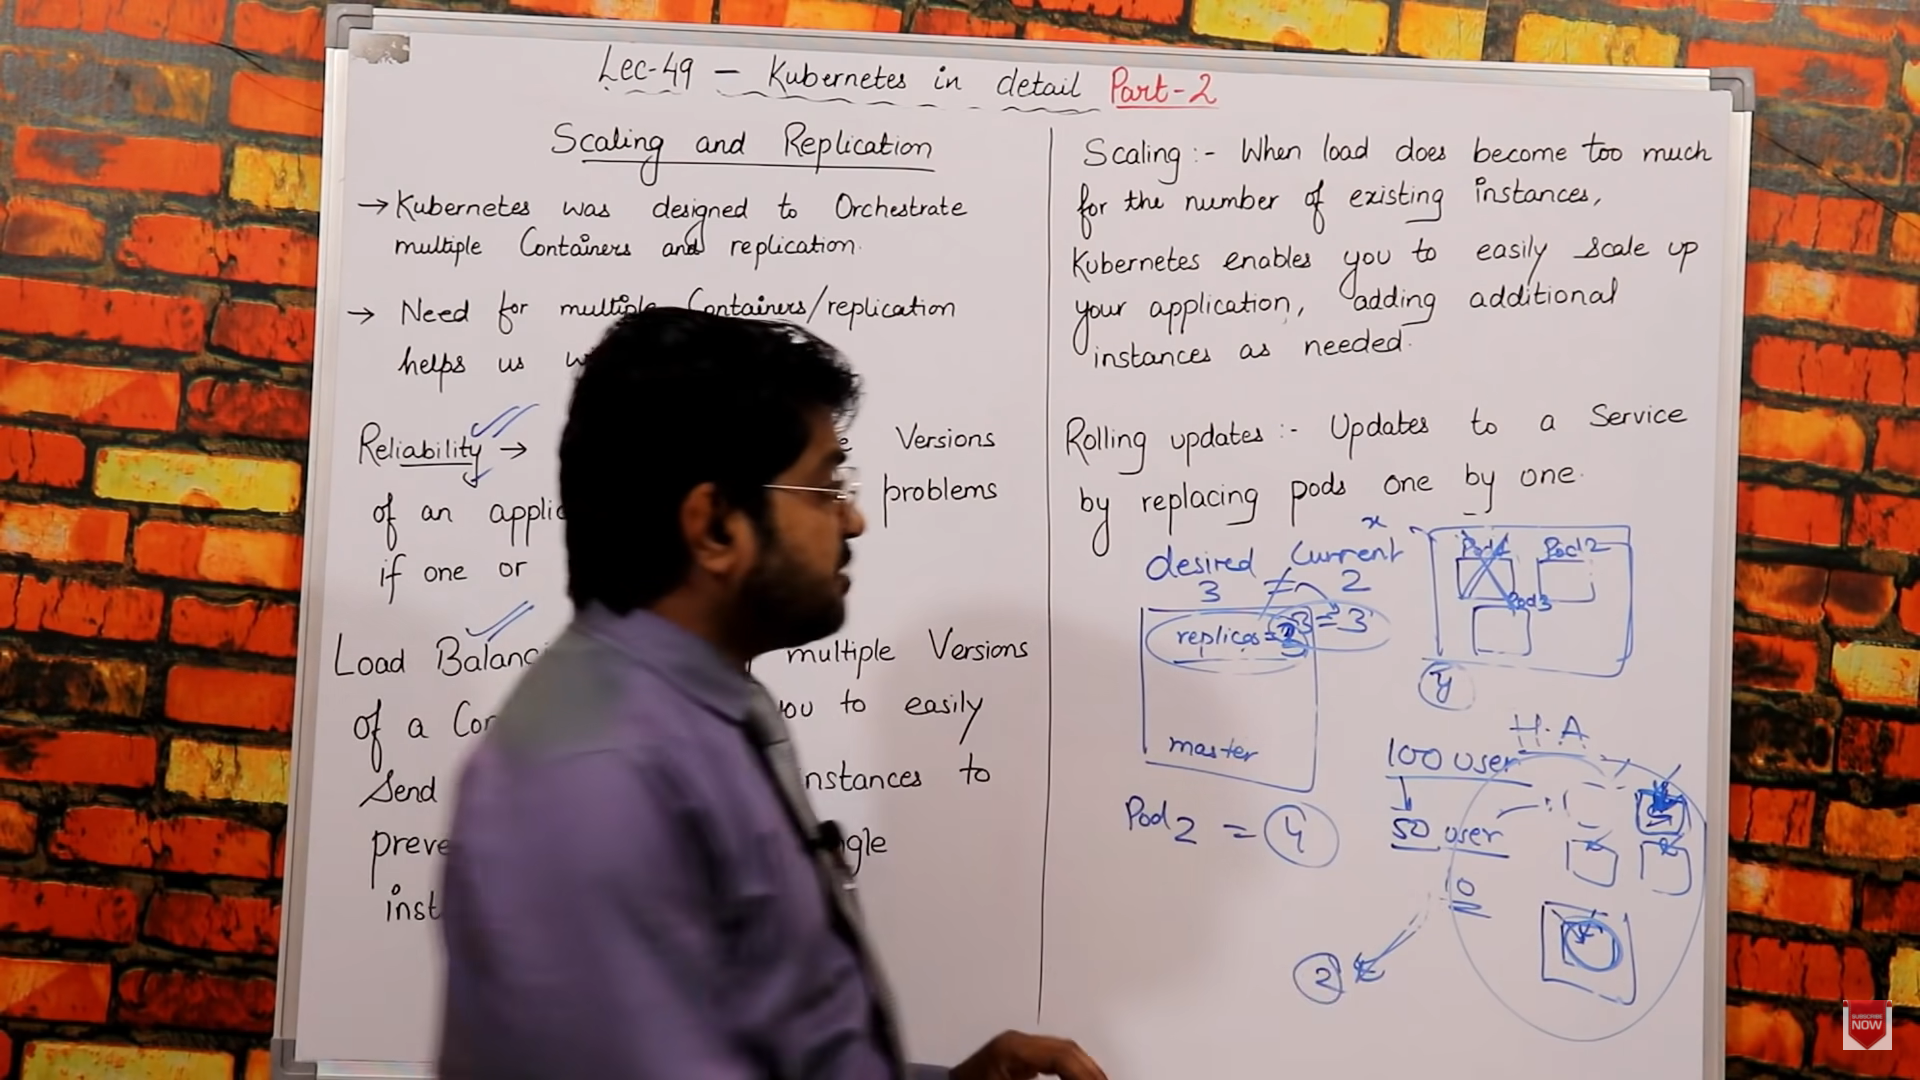 Lec-49 – Kubernetes in detail Part-2
Scaling and Replication
→ Kubernetes was designed to Orchestrate
multiple Containers and replication.
→ Need for multiple Containers/replication
helps us
Reliability → Versions
of an problems
if one or
Load multiple Versions
of a you to easily
Send instances to
inst
Scaling :- When load does become too much
for the number of existing instances,
Kubernetes enables you to easily scale up
your application, adding additional
instances as needed.
Rolling updates :- Updates to a Service
by replacing pods one by one.
x
desired Current
3 ≠ 2
replicas =
3 = 3
master
Pod 2 = 4
Pod1 Pod2
Pod3
y
H.A
100 user
50 user
10
2
SUBSCRIBE
NOW